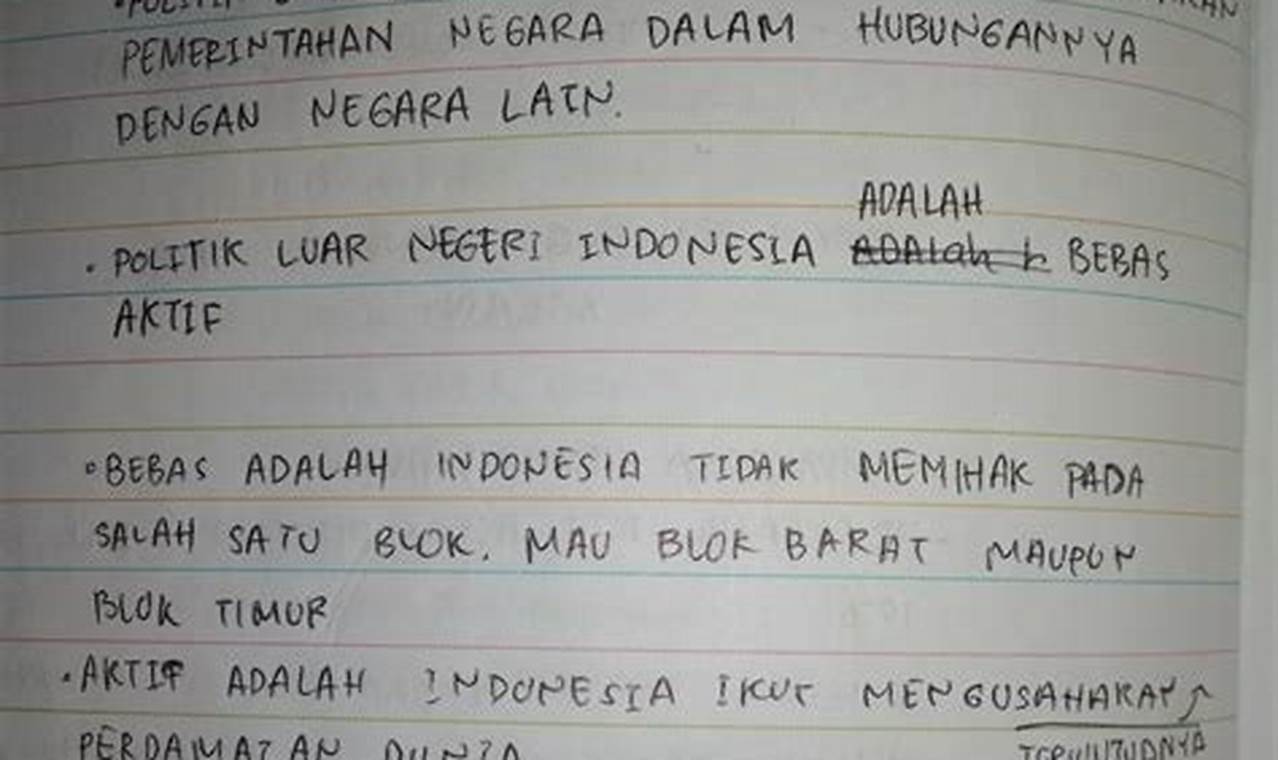 PEMERINTAHAN NEGARA DALAM HUBUNGANNYA
DENGAN NEGARA LAIN.
ADALAH
• POLITIK LUAR NEGERI INDONESIA ADALah BEBAS
AKTIF
• BEBAS ADALAH INDONESIA TIDAK MEMIHAK PADA
SALAH SATU BLOK. MAU BLOK BARAT MAUPUN
BLOK TIMUR
• AKTIF ADALAH INDONESIA IKUT MENGUSAHAKAN
PERDAMAIAN DUNIA TERWUJUDNYA